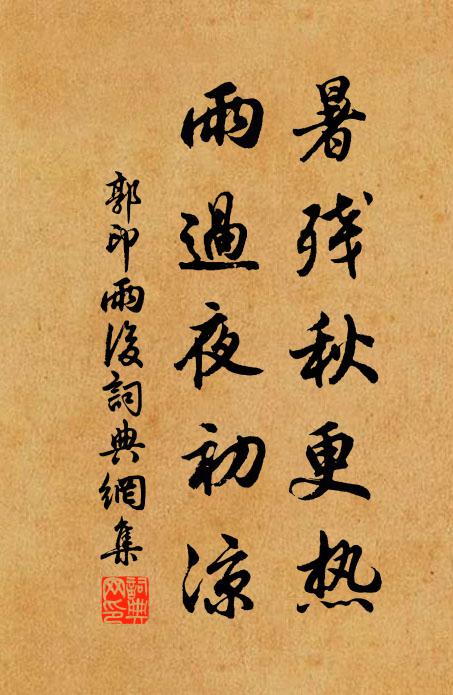 暑残秋更热
雨過夜初凉
郭印雨後詞典網集
詞典網印